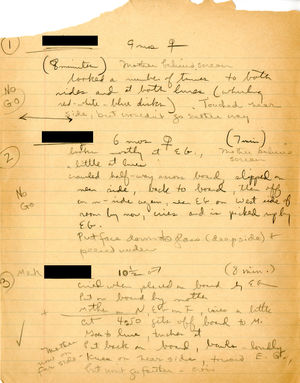 1
9 mos ♀
(8 minutes) Mother behind screen
looked a number of times to both
sides and at both lures (whirling
red-white-blue disks). Touched near
side, but would not go either way
No
Go
2
6 mos ♀ (7 min)
Mother behind
screen
looks mostly at E.G.,
little at lures
crawled half-way across board, slipped on
near side, back to board, then off
on n-side again, sees EG on West side of
room by now, cries and is picked up by
EG.
Put face down to glass (deep side) &
peered under
No
Go
3 10½ ♂ (8 min.)
cried when placed on board by EG
Put on board by mother
Mother on N, G on F, cries a little
at gets off board to M.
to lure, touches it
Put back on board, looks
Mother
now on
far side
Knees on near side, toward E. G.,
but won't go farther - cries